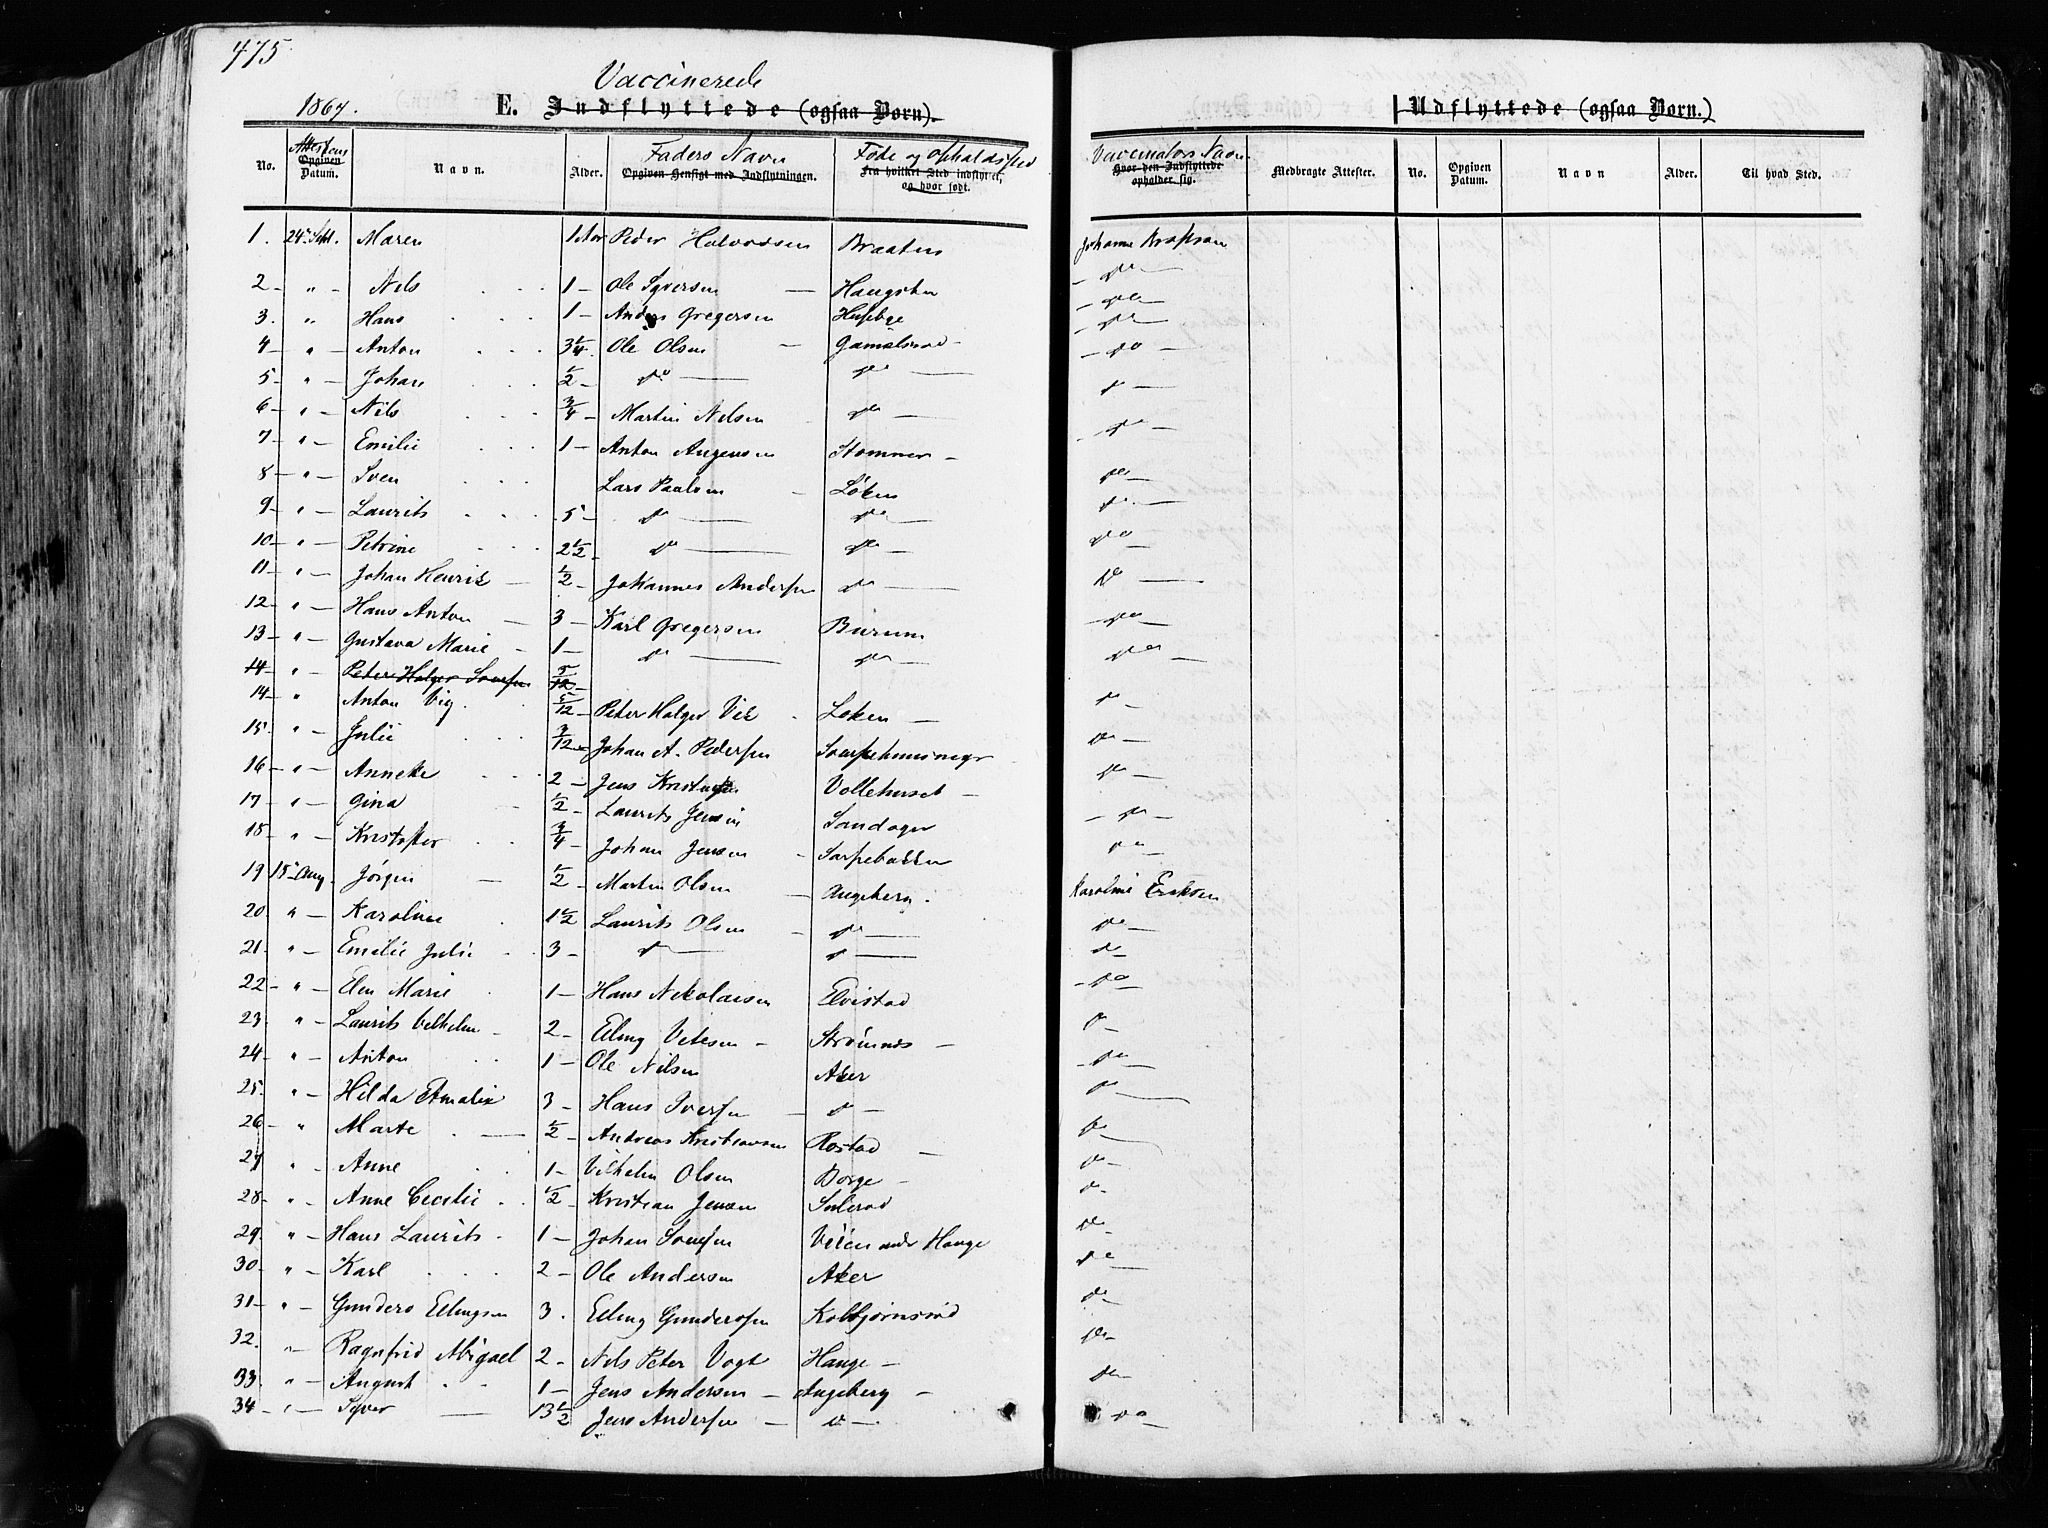 475
Vaccinerede
1867. E. Indflyttede (ogsaa Børn). Udflyttede (ogsaa Børn.)
No. Attestens Opgiven Datum. Navn. Alder. Faders Navn Opgiven Hensigt med Indflytningen. Føde og Opholdssted Fra hvilket Sted indflyttet, og hvor født. Vaccinators Navn. Hvor den Indflyttede opholder sig. Medbragte Attester. No. Opgiven Datum. Navn Alder. Til hvad Sted.
1. 24de Sept. Maren 1 Peder Halvorsen Braaten Johanne
2 - " - Nils 1 - Ole Syversen - Haugsten - do -
3. " - Hans 1 - Anders Gregersen Husebye - do -
4 - " - Anton 3/4 - Ole Olsen - Gamelsrød - - do -
5 - " - Johan 1/2 - do - do - - do -
6 - " - Nils 3/4 - Martin Nelsen do - do -
7 - " - Emilie 1 - Anton Stommer - - do -
8 - " - Sven Lars Paulsen - Løken do -
9 - " - Laurits 5 - do - do - do -
10 - " - Petrine 2 1/2 - do - do - do -
11 - " - Johan Henrik - 1/2 - Johannes Andersen do - do -
12 - " - Hans Anton - 3 - Karl Gregersen Burum - do -
13 - " - Gustava Marie - 1 - do - do - do -
14 - " - Peter Holger 5/12 -
14 - " Anton Vig 5/12 - Peter Holger Vik Løken - do -
15. " - Julie 3/12 - Johan A. Pedersen do -
16 - " - Anneke 2 - Jens do -
17 - " - Gina - 1/2 - Laurits Jensen Sandager - do -
18 - " - Kristoffer 3/4 - Johan Jensen - Sarpebakken do -
19 15de Aug. Jørgen - 1/2 Martin Olsen - Augeberg. Karoline Eriksen
20. " - Karoline 1 1/2 Laurits Olsen - do - do -
21 - " - Emilie Julie 3 - do - do - do -
22 - " - Elen Marie 1 - Hans Nikolaisen Elvistad - do -
23. " - Laurits Vilhelm - 2 - Strømnes - do -
24 - " - Anton 1 - Ole Nilsen Aker - do -
25. " - Hilda Amalie 3 - Hans Iversen - do - do -
26 - " - Marte - 1/2 - Andreas Kristiansen Rostad - do -
27 " - Anne 1 - Vilhelm Olsen Borge - do -
28 - " - Anne Cecilie 1/2 - Kristian Jensen do -
29. " - Hans Laurits 1 - Johan do -
30 - " - Karl 2 - Ole Andersen Aker do -
31 - " - Gunders Edingsen 3. Eding Gundersen Kolbjørnsrød do -
32. " - Ragnfrid Abigael 2 - Nils Peter Vogt Hauge - do -
33. " - August 1 - Jens Andersen - Augeberg - do -
34 - " - Syver - 13 1/2 Jens Andersen - do - do -